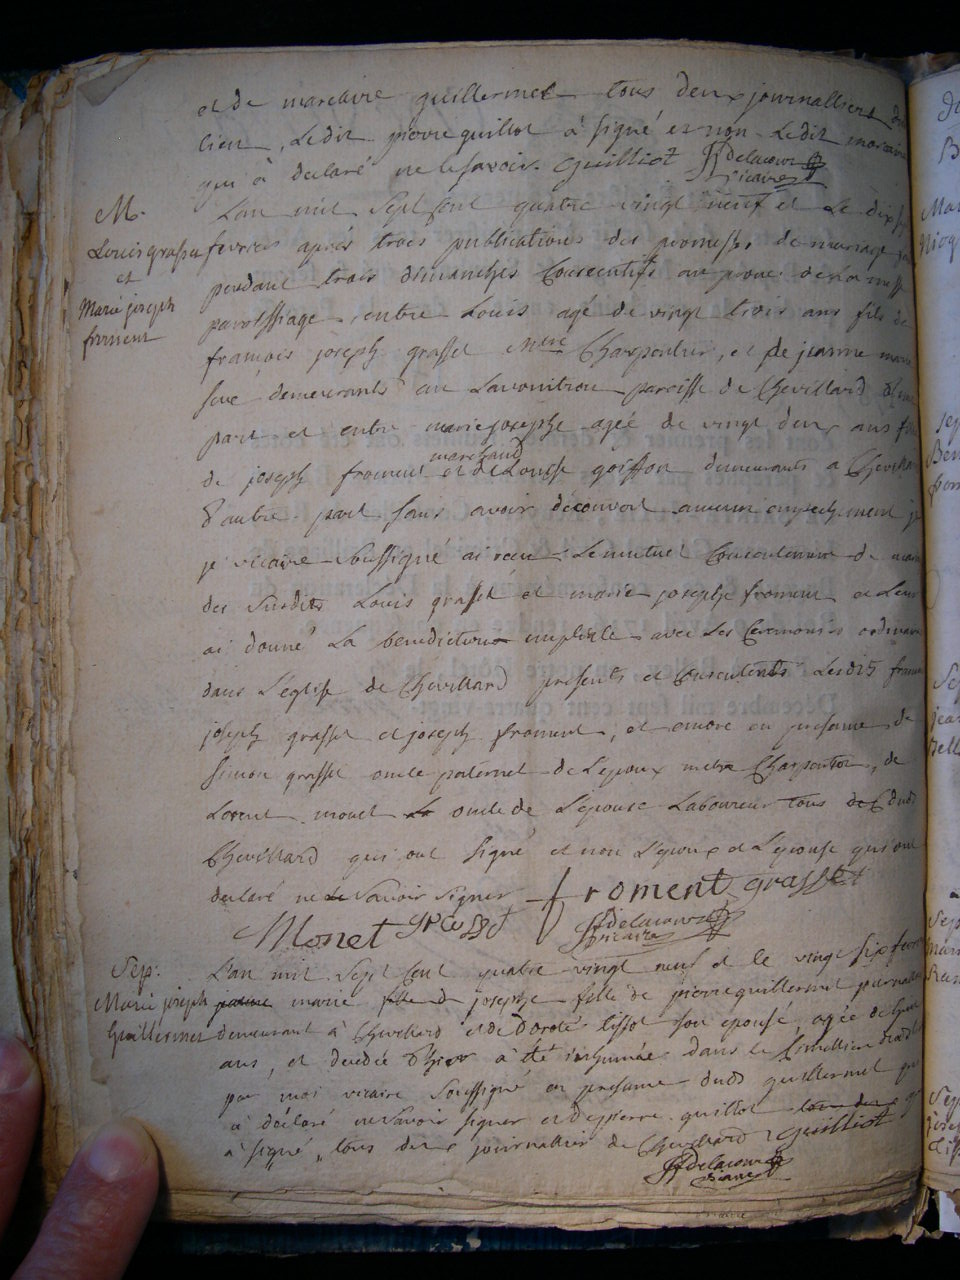 et de marclaire guillermet tous deux journalliers du
lieu, Ledit pierre guillot à signé et non Ledit
qui à declaré ne le savoir. Guilliot JJ delacour
vicaire
M.
Louis grasset
et
Marie joseph
froment
L'an mil Sept Cent quatre vingt neuf et Le dix
fevrier après trois publications des promesses de mariage
pendant trois dimanches Consecutifs au prone de La messe
paroissiage, entre Louis agé de vingt trois ans fils de
francois joseph grasset mtre Charpentier, et de jeanne marie
demeurants au Lavonitrou paroisse de Chevillard d'une
part et entre marie josephe agée de vingt deux ans fille
marchand
de joseph froment et de Louise goiffon demeurants a Chevillard
d'autre part sans avoir découvert aucun empechement
je vicaire soussigné ai recu Le mutuel Consentement de
des Susdits Louis grasset et marie josephe froment et Leur
ai donné La benediction nuptiale avec Les Ceremonies ordinaires
dans L'église de Chevillard presents et Consentents Lesdits francois
joseph grasset et joseph froment, et encore en presence de
Simon grasset oncle paternel de L'epoux metre Charpentier, de
Lorent monet oncle de L'epouse Laboureur tous dudt
Chevillard qui ont signé et non L'epoux et L'epouse qui ont
declaré ne savoir signer froment grasset
Monet grasset JJ delacour
vicaire
Sep.
Marie joseph
Guillermet
L'an mil Sept Cent quatre vingt neuf et le vingt six fevrier
marie josephe fille de pierre guillermet journallier
demeurant à Chevillard et de Doroté tissot son epouse, agée de
ans, et decedée hier à été inhumée dans le Cimettiere
par moi vicaire soussigné en presence dudt guillermet qui
à déclaré ne savoir signer et de pierre guillot qui
à signé, tous deux journallier de Chevillard Guilliot
JJ delacour
vicaire